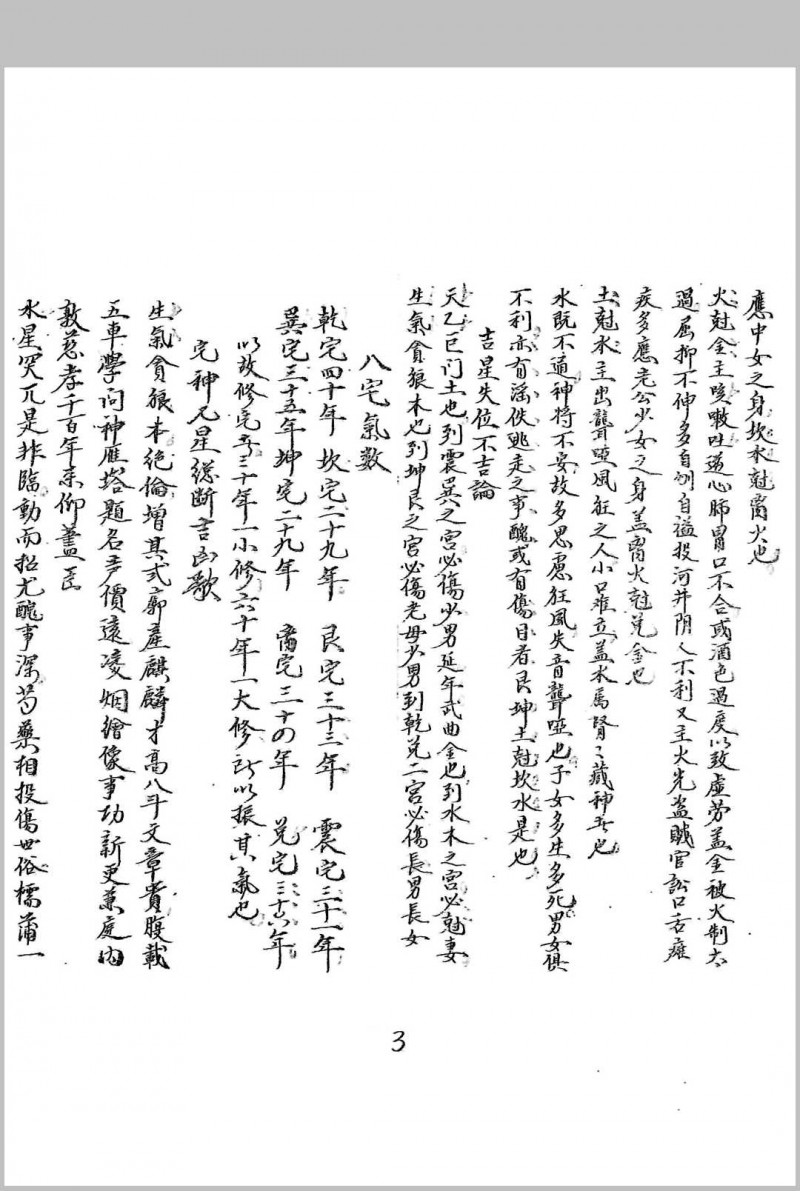 應中女之身坎水尅离火也
火尅金主咳嗽吐逆心肺胃口不合或酒色過度以致虛勞盖金被火制太
過屈抑不伸多自刎自謚投河井阴人不利又主火光盗賊官訟口舌癱
疾多應老公少女之身盖离火尅兌金也
土尅水主出聾啞風狂之人小口难立盖水爲腎〻藏神者也
水既不通神將不安故多思慮狂風失音聾啞也子女多生多死男女俱
不利亦有淫佚逃走之事醜或有傷目者艮坤土尅坎水是也
吉星失位不吉論
天乙巨门土也到震巽之宫必傷少男延年武曲金也到水木之宫必尅妻
生氣貪狼木也到坤艮之宫必傷老母少男到乾兌二宫必傷長男長女
八宅氣数
乾宅四十年 坎宅二十九年 艮宅三十三年 震宅三十一年
巽宅三十五年 坤宅二十九年 离宅三十四年 兌宅三十六年
以故修宅者三十年一小修六十年一大修所以振其氣也
宅神凡星總断吉凶歌
生氣貪狼本絶倫增其式廓產麒麟才高八斗文章貴腹載
五車學问神雁塔題名声價遠凌烟繪像事功新更兼庭内
敦慈孝千百年来仰藎臣
水星突兀是非臨動而招尤醜事深芍藥相投傷世俗樗蒲一
3